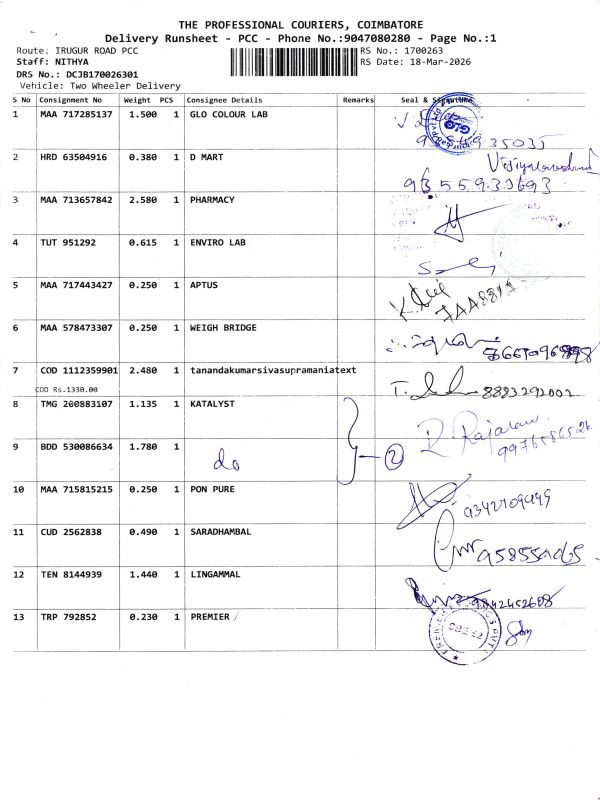 THE PROFESSIONAL COURIERS, COIMBATORE
Delivery Runsheet - PCC - Phone No.:9047080280 - Page No.:1
Route: IRUGUR ROAD PCC RS No.: 1700263
Staff: NITHYA RS Date: 18-Mar-2026
DRS No.: DCJB170026301
Vehicle: Two Wheeler Delivery
S No Consignment No Weight PCS Consignee Details Remarks Seal & Signature
1 MAA 717285137 1.500 1 GLO COLOUR LAB
2 HRD 63504916 0.380 1 D MART
3 MAA 713657842 2.580 1 PHARMACY
4 TUT 951292 0.615 1 ENVIRO LAB
5 MAA 717443427 0.250 1 APTUS
6 MAA 578473307 0.250 1 WEIGH BRIDGE
7 COD 1112359901 2.480 1 tanandakumarsivasupramaniatext
COD Rs.1330.00 8883292002
8 TMG 200883107 1.135 1 KATALYST R. Rajaram
9976586526
9 BDD 530086634 1.780 1 do 2
10 MAA 715815215 0.250 1 PON PURE 9342709499
11 CUD 2562838 0.490 1 SARADHAMBAL
12 TEN 8144939 1.440 1 LINGAMMAL 9842452608
13 TRP 792852 0.230 1 PREMIER